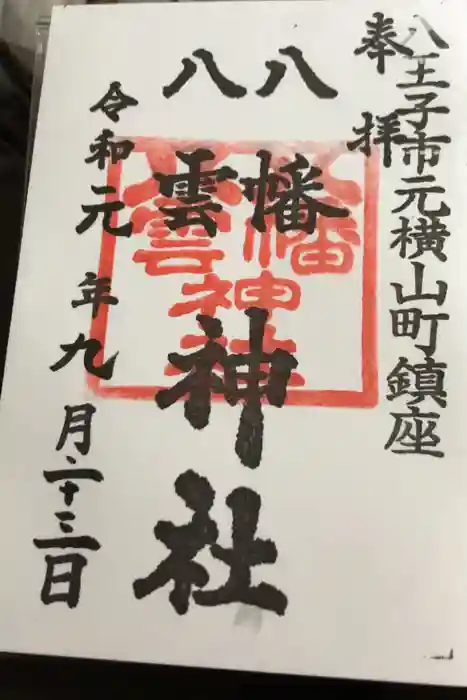 八王子市元横山町鎮座
奉拝
八幡
八雲
神社
令和元年九月二十三日
八幡
八雲
神社